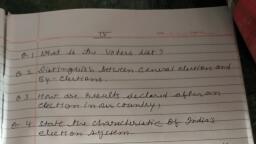 IV
Q.1 What is the voters list?
Q.2 Distinguish between General election and
By-elections.
Q.3 How are results declared after an
election in our country?
Q.4 State the characteristic of India's
election system.